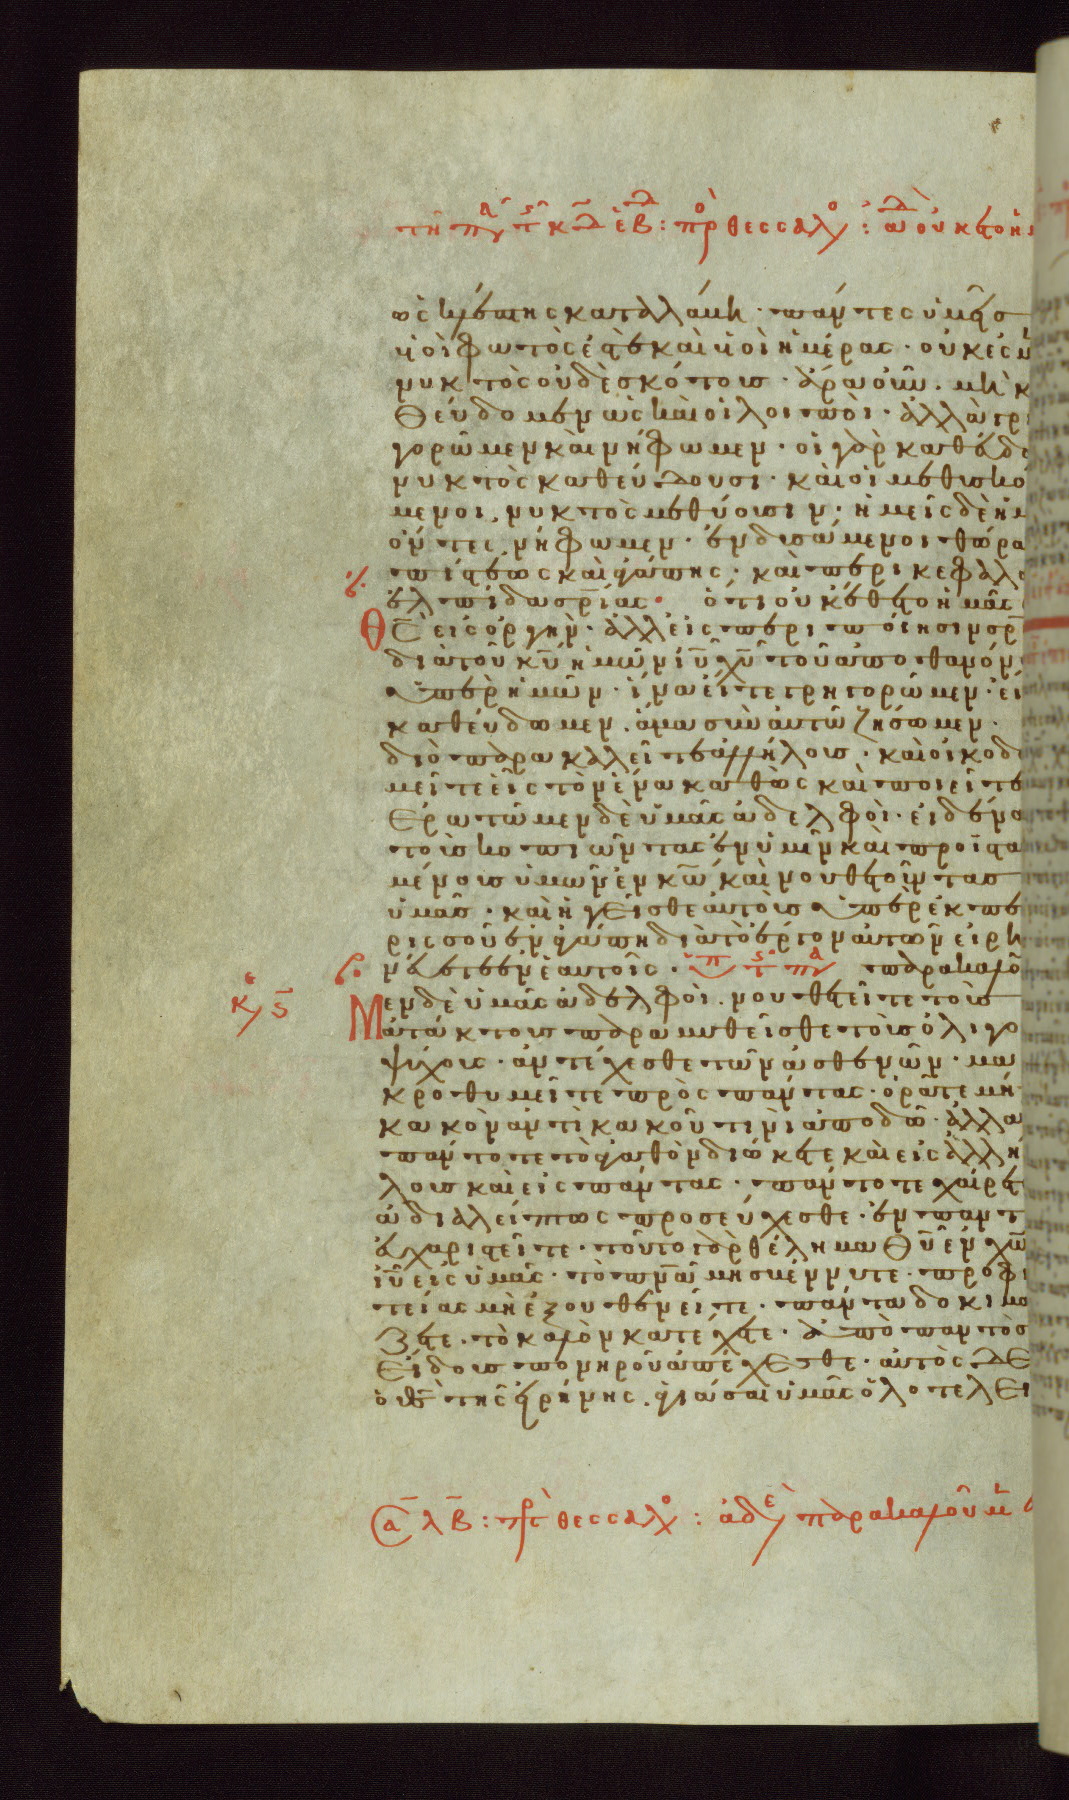 τῇ πγ τ κδ ἑβ: πρ θεσσαλ: ἀδ οὐκ ἔθετο ἡ
ὡς κλέπτης καταλάβη · πάντες ὑμεῖς
υἱοὶ φωτὸς ἐστὲ καὶ υἱοὶ ἡμέρας · οὐκ ἐσμὲ
νυκτὸς οὐδὲ σκότους · ἄρα οὖν · μὴ κ
θεύδομεν ὡς καὶ οἱ λοιποὶ · ἀλλὰ γρη
γορῶμεν καὶ νήφωμεν · οἱ γὰρ καθεύδο
νυκτὸς καθεύδουσι · καὶ οἱ μεθυσκό
μενοι, νυκτὸς μεθύουσιν · ἡμεῖς δὲ ἡμ
όντες νήφωμεν · ἐνδυσάμενοι θώρα
πίστεως καὶ ἀγάπης · καὶ περικεφαλα
ἐλπίδα σρίας · ὅτι οὐκ ἔθετο ἡμᾶς
ΘΣ εἰς ὀργὴν · ἀλλ' εἰς περιποίησιν σρ
διὰ τοῦ κυ ἡμῶν ιυ χυ τοῦ ἀποθανόν
ὑπὲρ ἡμῶν · ἵνα εἴτε γρηγορῶμεν · εἴ
καθεύδωμεν, ἅμα σὺν αὐτῶ ζήσωμεν ·
διὸ παρακαλεῖτε ἀλλήλους · καὶ οἰκοδο
μεῖτε εἷς τὸν ἕνα καθὼς καὶ ποιεῖτε
Ερωτῶμεν δὲ ὑμᾶς ἀδελφοὶ · εἰδέναι
τοὺς κοπιῶντας ἐν ὑμῖν καὶ προϊστα
μένους ὑμῶν ἐν κω καὶ νουθετοῦντας
ὑμᾶς · καὶ ἡγεῖσθε αὐτοὺς ὑπὲρ ἐκ πε
ρισσοῦ ἐν ἀγάπη διὰ τὸ ἔργον αὐτῶν εἰρη
νεύετε ἐν ἑαυτοῖς · παρακαλοῦ
κυ ς Μεν δὲ ὑμᾶς ἀδελφοὶ · νουθετεῖτε τοὺς
ἀτάκτους παραμυθεῖσθε τοὺς ὀλιγο
ψύχους · ἀντέχεσθε τῶν ἀσθενῶν · μα
κροθυμεῖτε πρὸς πάντας · ὁρᾶτε μή
κακὸν ἀντὶ κακοῦ τινὶ ἀποδῶ · ἀλλὰ
πάντοτε τὸ ἀγαθὸν διώκετε καὶ εἰς ἀλλή
λους καὶ εἰς πάντας · πάντοτε χαίρετε
ἀδιαλείπτως προσεύχεσθε · ἐν παντ
εὐχαριστεῖτε · τοῦτο γὰρ θέλημα θυ ἐν χω
ιυ εἰς ὑμᾶς · τὸ πνα μὴ σβέννυτε · προφη
τείας μὴ ἐξουθενεῖτε · πάντα δοκιμά
ζετε · τὸ καλὸν κατέχετε · ἀπὸ παντὸς
εἴδους πονηροῦ ἀπέχεσθε · αὐτὸς δὲ
ὁ θς τῆς εἰρήνης · ἁγιάσαι ὑμᾶς ὁλοτελεῖ
α λβ: πρ θεσσαλ: ἀδε παρακαλοῦμ